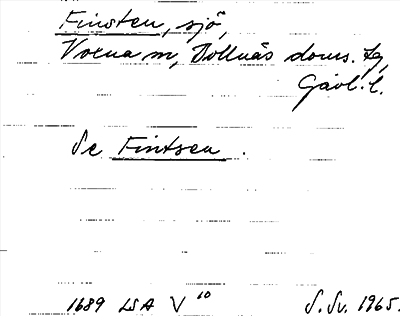 Finsten, sjö,
Voxna sn, Bollnäs doms. tg,
Gävl. l.
Se Fintsen.
1689 LSA V 10
S. Sv. 1965.